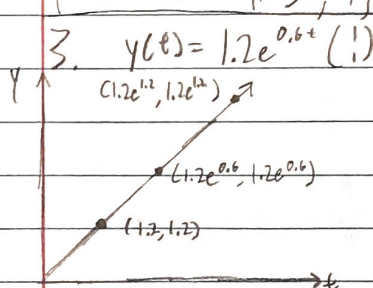 3. y(t) = 1.2e^0.6t (1 1)
Y
(1.2e^1.2, 1.2e^1.2)
(1.2e^0.6, 1.2e^0.6)
(1.2, 1.2)
t